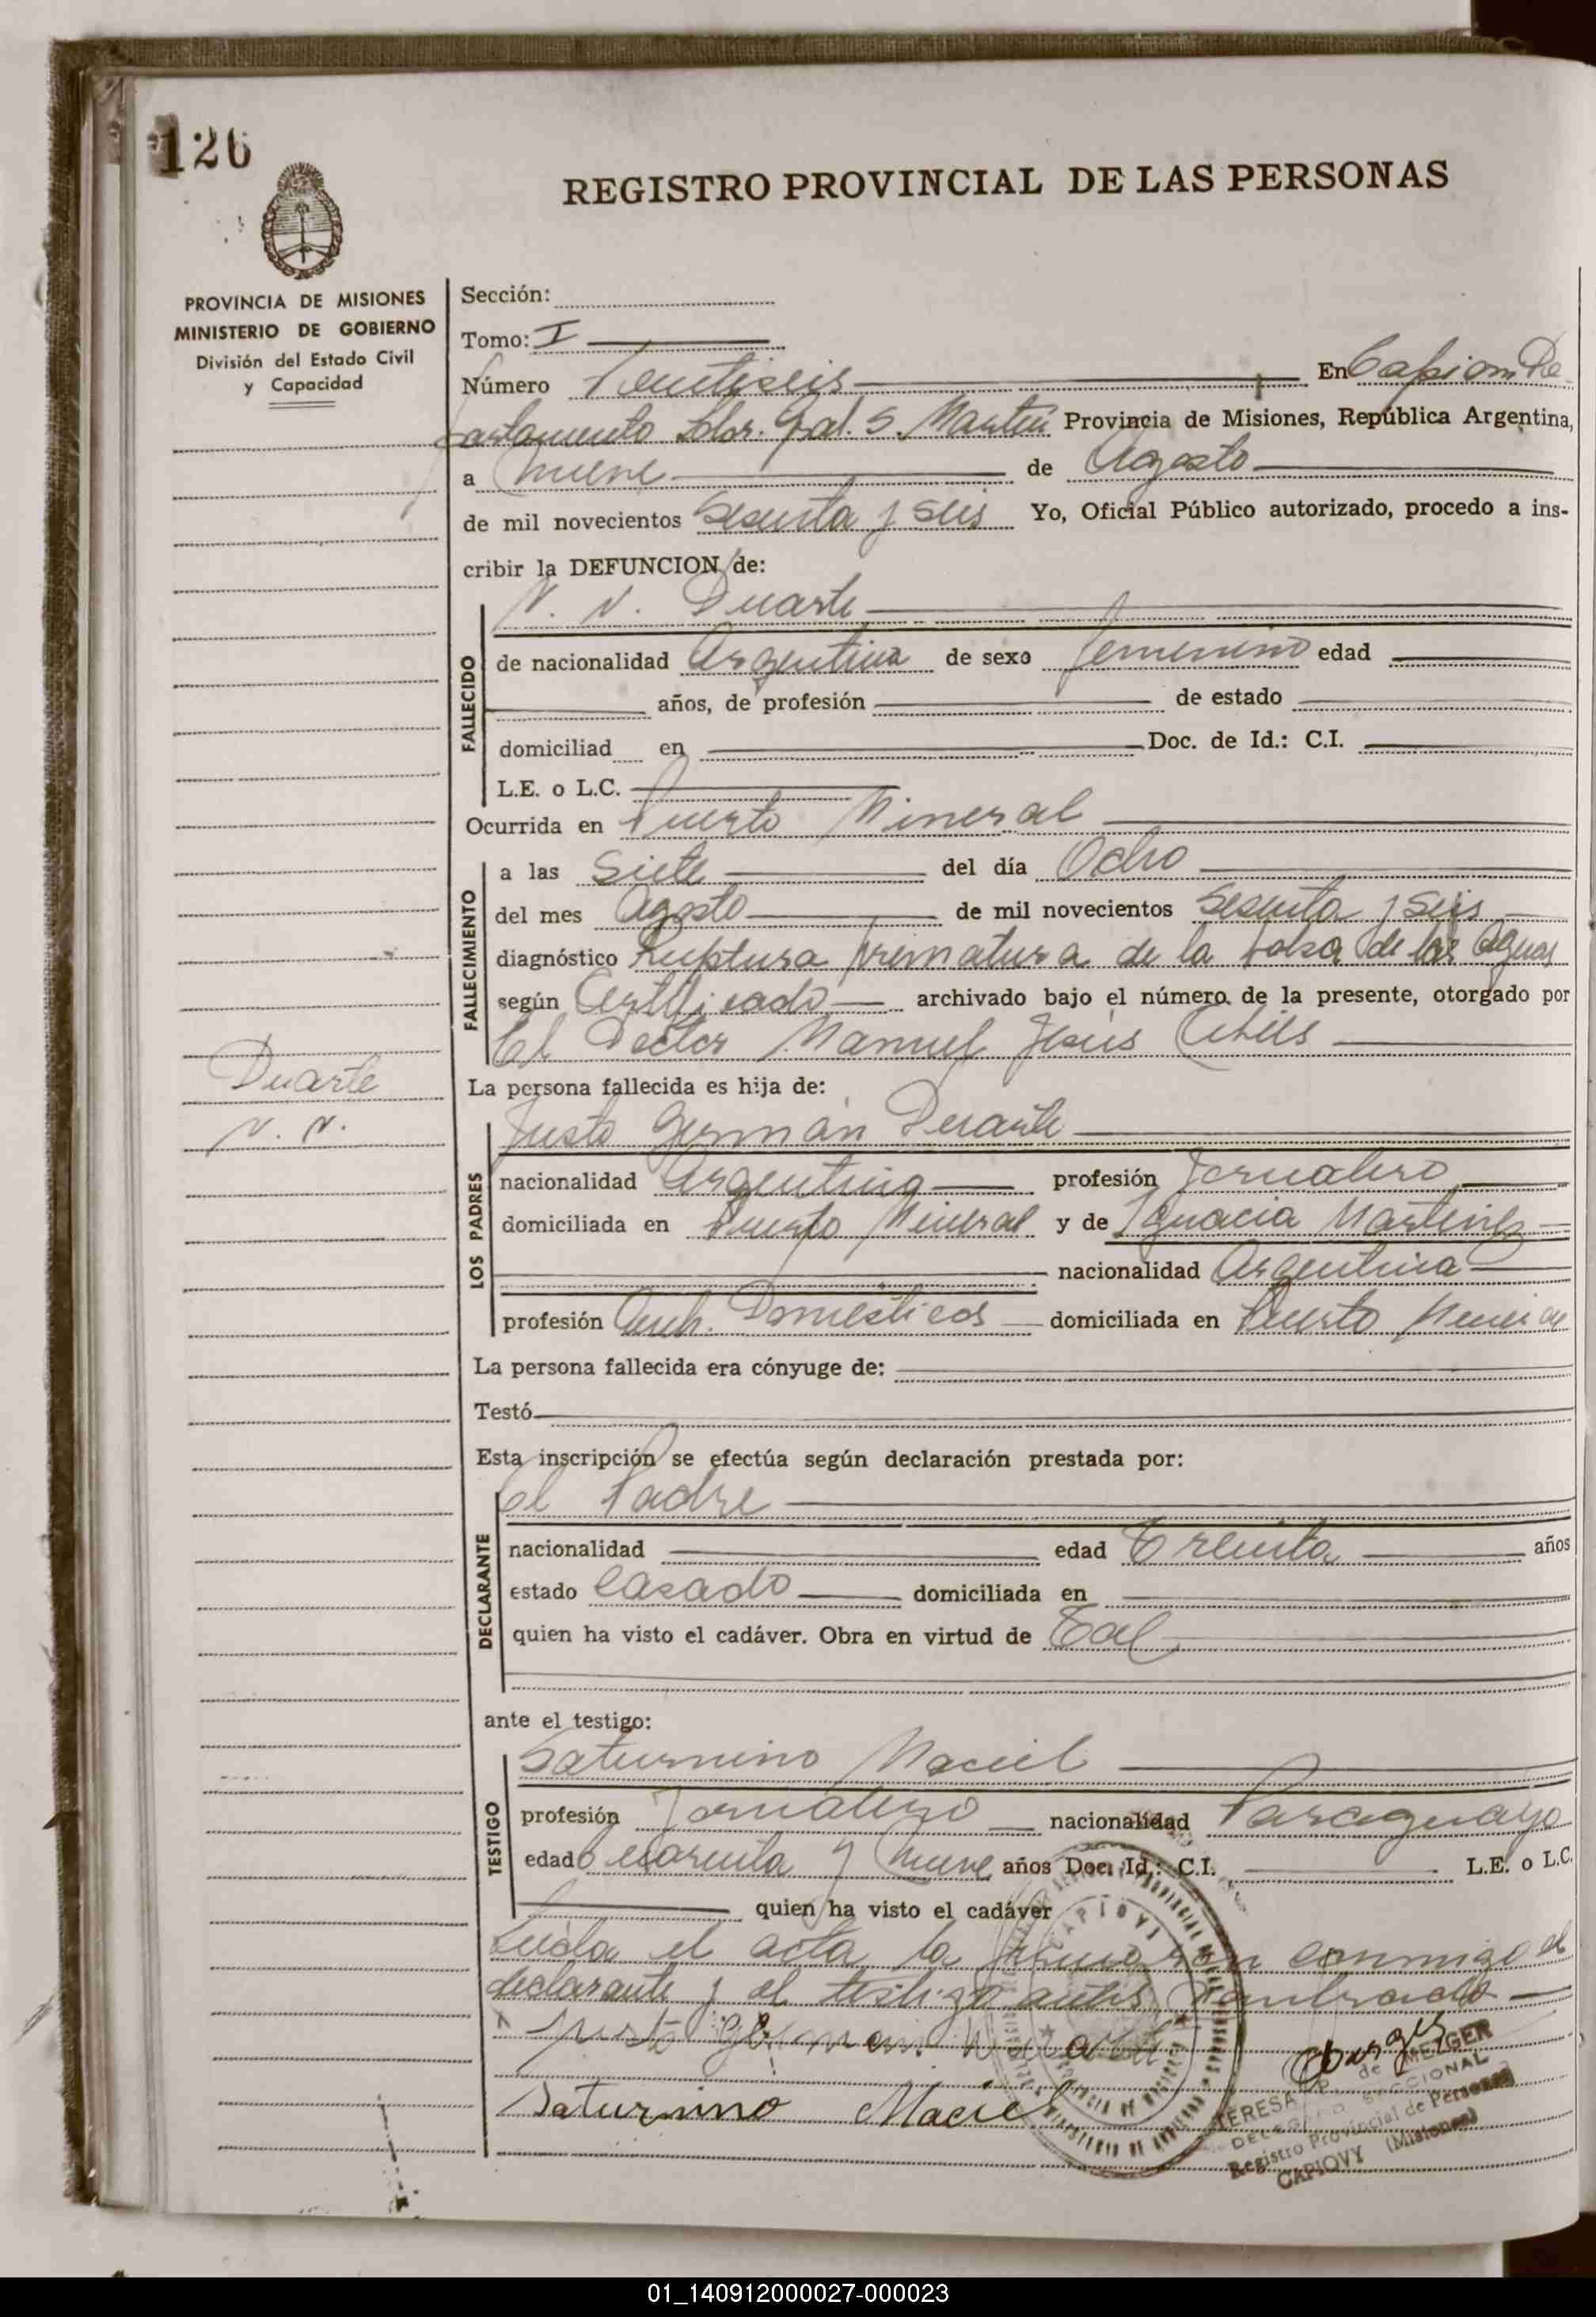 126
REGISTRO PROVINCIAL DE LAS PERSONAS
PROVINCIA DE MISIONES
MINISTERIO DE GOBIERNO
División del Estado Civil
y Capacidad
Sección:
Tomo: I
Número Ventiseis En Capiovi De
partamento Ldor. Gral. S. Martin Provincia de Misiones, República Argentina,
a nueve de Agosto
de mil novecientos Sesenta y seis Yo, Oficial Público autorizado, procedo a ins-
cribir la DEFUNCION de:
N. N. Duarte
FALLECIDO
de nacionalidad Argentina de sexo femenino edad
años, de profesión de estado
domiciliad en Doc. de Id.: C.I.
L.E. o L.C.
Ocurrida en Puerto Mineral
FALLECIMIENTO
a las Siete del día Ocho
del mes Agosto de mil novecientos Sesenta y Seis
diagnóstico Ruptura prematura de la bolsa de las Aguas
según Certificado archivado bajo el número de la presente, otorgado por
El Doctor Manuel Jesús
Duarte
N. N.
La persona fallecida es hija de:
Justo Germán Duarte
LOS PADRES
nacionalidad Argentina profesión Jornalero
domiciliada en Puerto Mineral y de Ignacia Martinez
nacionalidad Argentina
profesión Domésticos domiciliada en Puerto Mineral
La persona fallecida era cónyuge de:
Testó
Esta inscripción se efectúa según declaración prestada por:
el Padre
DECLARANTE
nacionalidad edad Treinta años
estado Casado domiciliada en
quien ha visto el cadáver. Obra en virtud de Tal
ante el testigo:
Saturnino Maciel
TESTIGO
profesión Jornalero nacionalidad Paraguayo
edad Cuarenta y Nueve años Doc. Id.: C.I. L.E. o L.C.
quien ha visto el cadáver
Leida el acta la firmaron conmigo el
declarante y el testigo antes nombrado
Justo German Duarte
Saturnino Maciel
CAPIOVY
TERESA P. de MEZGER
DELEGADO SECCIONAL
Registro Provincial de Personas
CAPIOVY (Misiones)
01_140912000027-000023